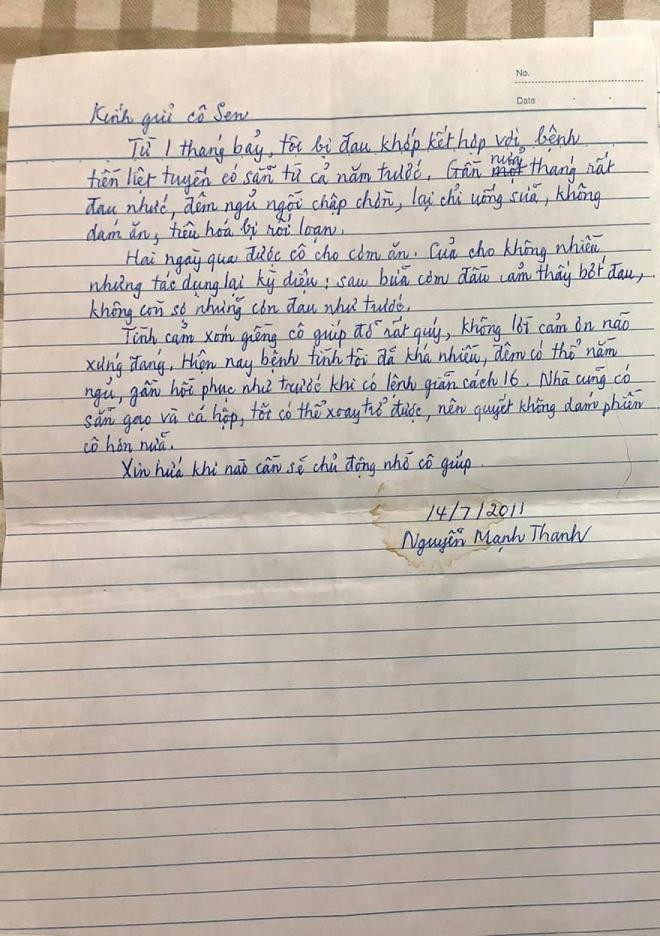 No.
Date
Kính gửi cô Sen
Từ 1 tháng bảy, tôi bị đau khớp kết hợp với bệnh
tiền liệt tuyến có sẵn từ cả năm trước. Gần nửa tháng rất
đau nhức, đêm ngủ ngồi chập chờn, lại chỉ uống sữa, không
dám ăn, tiêu hoá bị rối loạn.
Hai ngày qua được cô cho cơm ăn. Của cho không nhiều
nhưng tác dụng lại kỳ diệu; sau bữa cơm đầu cảm thấy bớt đau,
không còn sợ những cơn đau như trước.
Tình cảm xóm giềng cô giúp đỡ rất quý, không lời cảm ơn nào
xứng đáng. Hiện nay bệnh tình tôi đã khá nhiều, đêm có thể nằm
ngủ, gần hồi phục như trước khi có lệnh giãn cách 16. Nhà cũng có
sẵn gạo và cá hộp, tôi có thể xoay trở được, nên quyết không dám phiền
cô hơn nữa.
Xin hứa khi nào cần sẽ chủ động nhờ cô giúp.
14/7/2011
Nguyễn Mạnh Thanh